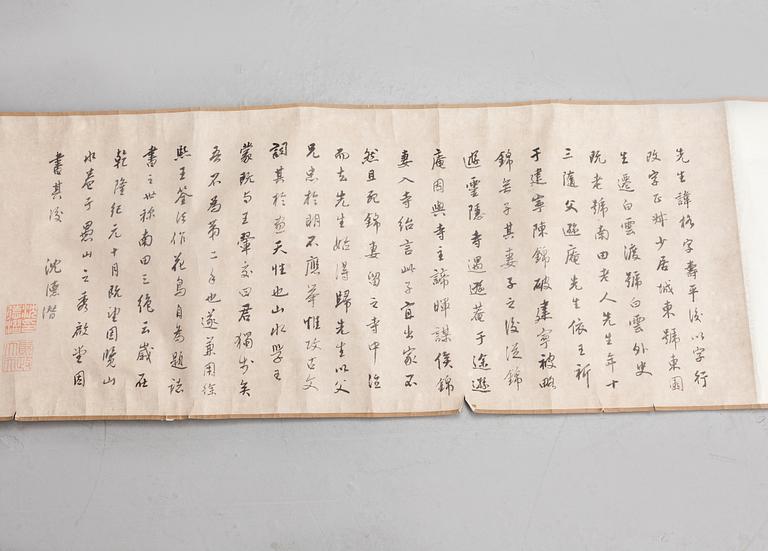 先生諱格字壽平後以字行
改字正叔少居城東號東園
生遷白雲渡號白雲外史
既老號南田老人先生年十
三隨父遯庵先生依王祈
于建寧陳錦破建寧被略
錦無子其妻子之後從錦
遊靈隱寺遇遯菴于途遯
庵因與寺主諦暉謀俟錦
妻入寺紿言此子宜出家不
然且死錦妻留之寺中泣
而去先生始得歸先生以父
兄忠於明不應舉惟攻古文
詞其於畫天性也山水學王
蒙既與王翬交曰君獨步矣
吾不為第二手也遂兼用徐
熙王筌法作花鳥自為題誌
書之世稱南田三絕云歲在
乾隆紀元十月既望因覽山
水卷于愚山之秀啟堂因
書其後 沈德潛